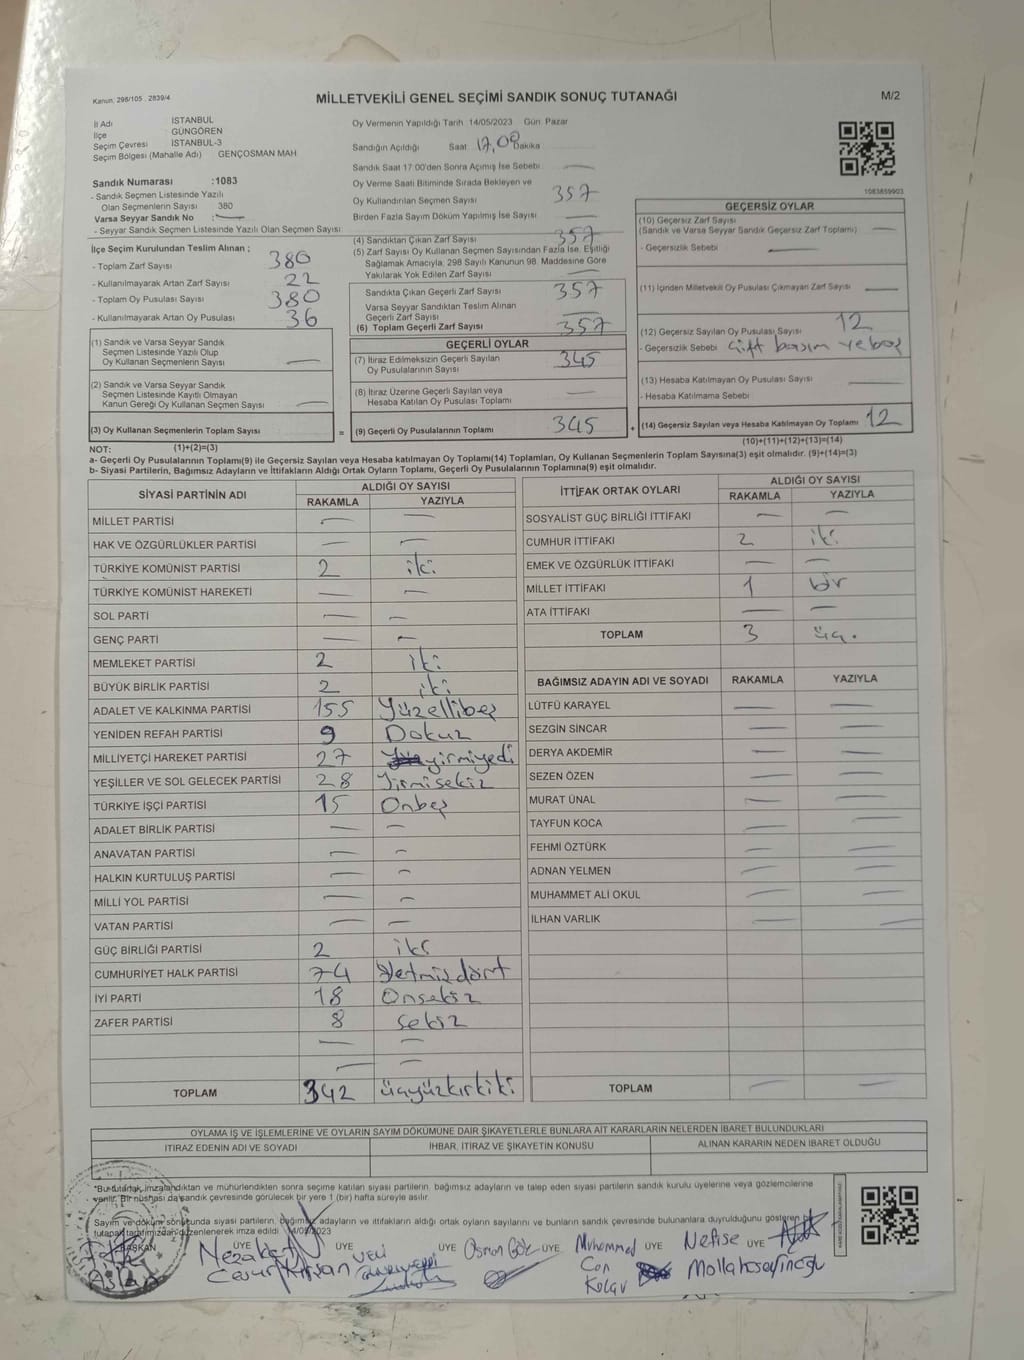 Kanun, 298/105 , 2839/4
MİLLETVEKİLİ GENEL SEÇİMİ SANDIK SONUÇ TUTANAĞI
M/2
İl Adı İSTANBUL
İlçe GÜNGÖREN
Seçim Çevresi İSTANBUL-3
Seçim Bölgesi (Mahalle Adı) GENÇOSMAN MAH
Sandık Numarası :1083
- Sandık Seçmen Listesinde Yazılı
Olan Seçmenlerin Sayısı 380
Varsa Seyyar Sandık No : —
- Seyyar Sandık Seçmen Listesinde Yazılı Olan Seçmen Sayısı
Oy Vermenin Yapıldığı Tarih 14/05/2023 Gün: Pazar
Sandığın Açıldığı Saat 17,08 Dakika
Sandık Saat 17:00'den Sonra Açımış İse Sebebi —
Oy Verme Saati Bitiminde Sırada Bekleyen ve
Oy Kullandırılan Seçmen Sayısı 357
Birden Fazla Sayım Döküm Yapılmış İse Sayısı —
1083859903
İlçe Seçim Kurulundan Teslim Alınan ;
- Toplam Zarf Sayısı 380
- Kullanılmayarak Artan Zarf Sayısı 22
- Toplam Oy Pusulası Sayısı 380
- Kullanılmayarak Artan Oy Pusulası 36
(1) Sandık ve Varsa Seyyar Sandık
Seçmen Listesinde Yazılı Olup
Oy Kullanan Seçmenlerin Sayısı —
(2) Sandık ve Varsa Seyyar Sandık
Seçmen Listesinde Kayıtlı Olmayan
Kanun Gereği Oy Kullanan Seçmen Sayısı —
(3) Oy Kullanan Seçmenlerin Toplam Sayısı =
(4) Sandıktan Çıkan Zarf Sayısı 357
(5) Zarf Sayısı Oy Kullanan Seçmen Sayısından Fazla İse, Eşitliği
Sağlamak Amacıyla, 298 Sayılı Kanunun 98. Maddesine Göre
Yakılarak Yok Edilen Zarf Sayısı —
Sandıkta Çıkan Geçerli Zarf Sayısı 357
Varsa Seyyar Sandıktan Teslim Alınan
Geçerli Zarf Sayısı —
(6) Toplam Geçerli Zarf Sayısı 357
GEÇERLİ OYLAR
(7) İtiraz Edilmeksizin Geçerli Sayılan
Oy Pusulalarının Sayısı 345
(8) İtiraz Üzerine Geçerli Sayılan veya
Hesaba Katılan Oy Pusulası Toplamı —
(9) Geçerli Oy Pusulalarının Toplamı 345 +
GEÇERSİZ OYLAR
(10) Geçersiz Zarf Sayısı
(Sandık ve Varsa Seyyar Sandık Geçersiz Zarf Toplamı) —
- Geçersizlik Sebebi —
(11) İçinden Milletvekili Oy Pusulası Çıkmayan Zarf Sayısı —
(12) Geçersiz Sayılan Oy Pusulası Sayısı 12
- Geçersizlik Sebebi çift basım ve boş
(13) Hesaba Katılmayan Oy Pusulası Sayısı —
- Hesaba Katılmama Sebebi
(14) Geçersiz Sayılan veya Hesaba Katılmayan Oy Toplamı 12
NOT: (1)+(2)=(3) (10)+(11)+(12)+(13)=(14)
a- Geçerli Oy Pusulalarının Toplamı(9) ile Geçersiz Sayılan veya Hesaba katılmayan Oy Toplamı(14) Toplamları, Oy Kullanan Seçmenlerin Toplam Sayısına(3) eşit olmalıdır. (9)+(14)=(3)
b- Siyasi Partilerin, Bağımsız Adayların ve İttifakların Aldığı Ortak Oyların Toplamı, Geçerli Oy Pusulalarının Toplamına(9) eşit olmalıdır.
SİYASİ PARTİNİN ADI ALDIĞI OY SAYISI
RAKAMLA YAZIYLA
MİLLET PARTİSİ — —
HAK VE ÖZGÜRLÜKLER PARTİSİ — —
TÜRKİYE KOMÜNİST PARTİSİ 2 iki
TÜRKİYE KOMÜNİST HAREKETİ — —
SOL PARTİ — —
GENÇ PARTİ — —
MEMLEKET PARTİSİ 2 iki
BÜYÜK BİRLİK PARTİSİ 2 iki
ADALET VE KALKINMA PARTİSİ 155 Yüzellibeş
YENİDEN REFAH PARTİSİ 9 Dokuz
MİLLİYETÇİ HAREKET PARTİSİ 27 yirmiyedi
YEŞİLLER VE SOL GELECEK PARTİSİ 28 Yirmisekiz
TÜRKİYE İŞÇİ PARTİSİ 15 Onbeş
ADALET BİRLİK PARTİSİ — —
ANAVATAN PARTİSİ — —
HALKIN KURTULUŞ PARTİSİ — —
MİLLİ YOL PARTİSİ — —
VATAN PARTİSİ — —
GÜÇ BİRLİĞİ PARTİSİ 2 iki
CUMHURİYET HALK PARTİSİ 74 Yetmişdört
İYİ PARTİ 18 Onsekiz
ZAFER PARTİSİ 8 Sekiz
— —
— —
TOPLAM 342 üçyüzkırkiki
İTTİFAK ORTAK OYLARI ALDIĞI OY SAYISI
RAKAMLA YAZIYLA
SOSYALİST GÜÇ BİRLİĞİ İTTİFAKI — —
CUMHUR İTTİFAKI 2 iki
EMEK VE ÖZGÜRLÜK İTTİFAKI — —
MİLLET İTTİFAKI 1 bir
ATA İTTİFAKI — —
TOPLAM 3 üç.
BAĞIMSIZ ADAYIN ADI VE SOYADI RAKAMLA YAZIYLA
LÜTFÜ KARAYEL — —
SEZGİN SİNCAR — —
DERYA AKDEMİR — —
SEZEN ÖZEN — —
MURAT ÜNAL — —
TAYFUN KOCA — —
FEHMİ ÖZTÜRK — —
ADNAN YELMEN — —
MUHAMMET ALİ OKUL — —
İLHAN VARLIK — —
TOPLAM — —
OYLAMA İŞ VE İŞLEMLERİNE VE OYLARIN SAYIM DÖKÜMÜNE DAİR ŞİKAYETLERLE BUNLARA AİT KARARLARIN NELERDEN İBARET BULUNDUKLARI
İTİRAZ EDENİN ADI VE SOYADI İHBAR, İTİRAZ VE ŞİKAYETİN KONUSU ALINAN KARARIN NEDEN İBARET OLDUĞU
*Bu tutanak, imzalandıktan ve mühürlendikten sonra seçime katılan siyasi partilerin, bağımsız adayların ve talep eden siyasi partilerin sandık kurulu üyelerine veya gözlemcilerine
verilir. Bir nüshası da sandık çevresinde görülecek bir yere 1 (bir) hafta süreyle asılır.
Sayım ve döküm sonucunda siyasi partilerin, bağımsız adayların ve ittifakların aldığı ortak oyların sayılarını ve bunların sandık çevresinde bulunanlara duyrulduğunu gösteren
tutanak tarafımızdan düzenlenerek imza edildi. 14/05/2023
BAŞKAN ÜYE ÜYE ÜYE ÜYE ÜYE ÜYE
Aslan
Nezaket
VELİ
Osman Gök
Muhammed
Can
Nefise
Mollahoseyinoğlu